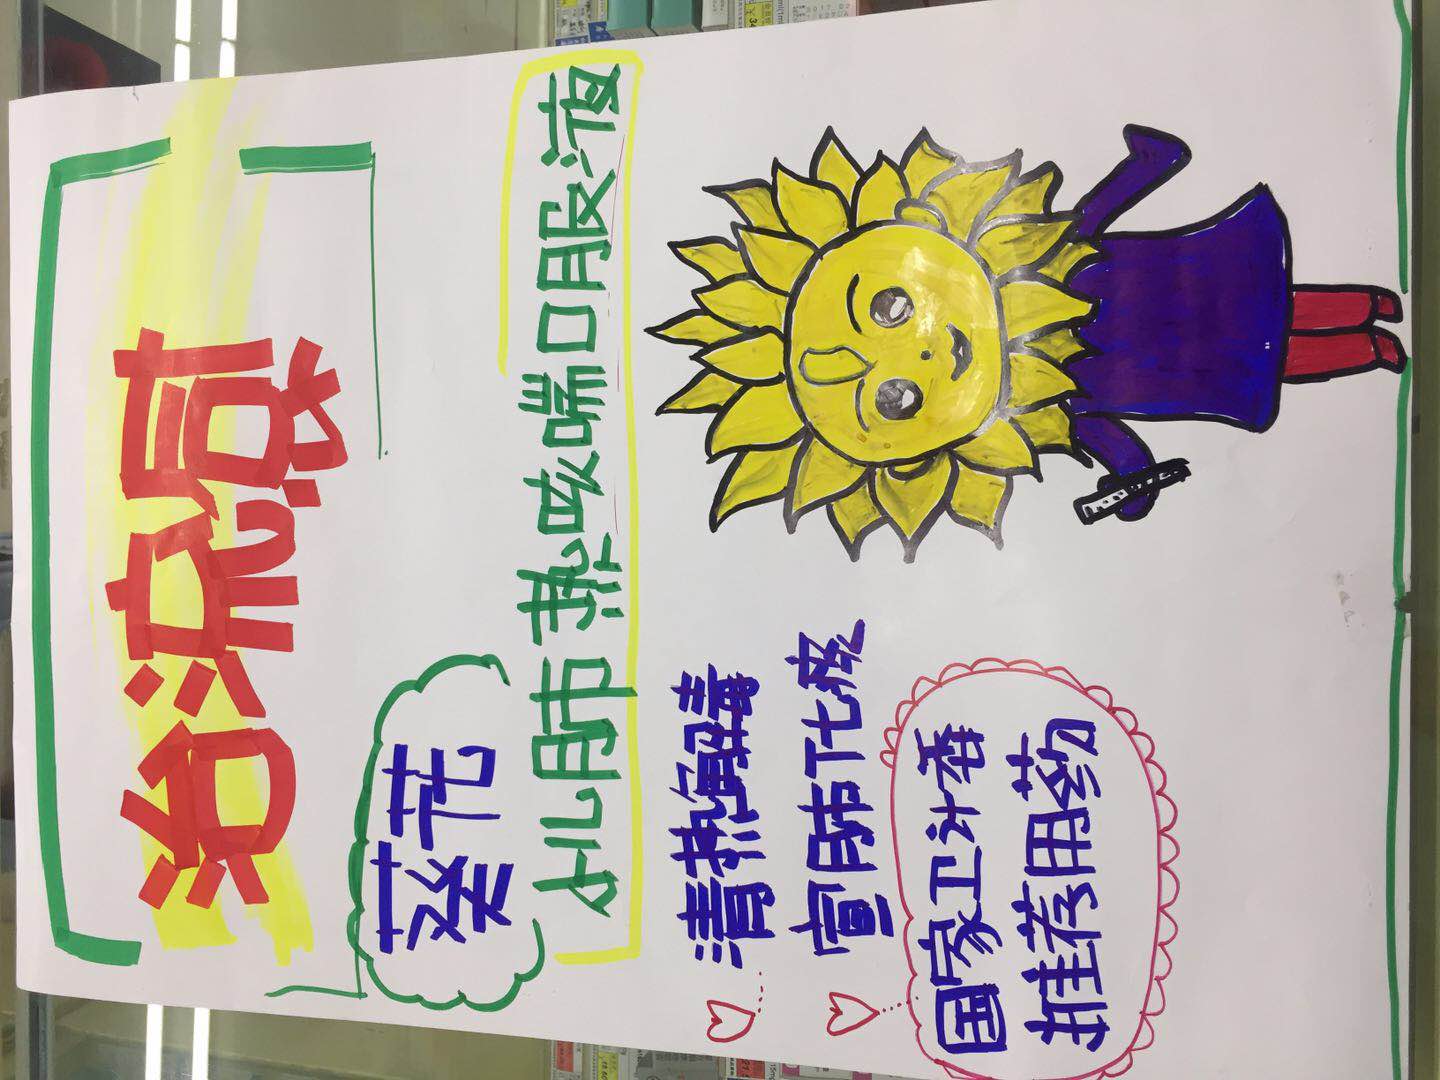 治流感
葵花
小儿肺热咳喘口服液
清热解毒
宣肺化痰
国家卫计委
推荐用药